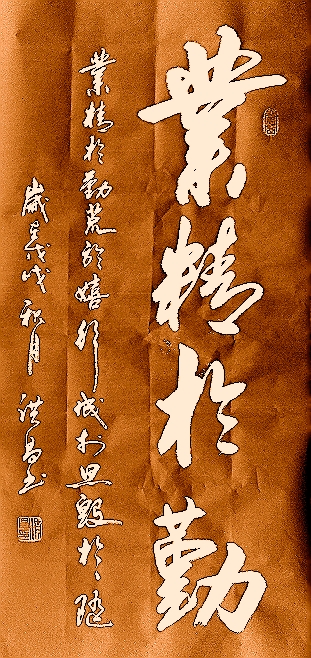 業精於勤
業精於勤荒於嬉行成於思毀於隨
歲在戊戌秋月洪昌书